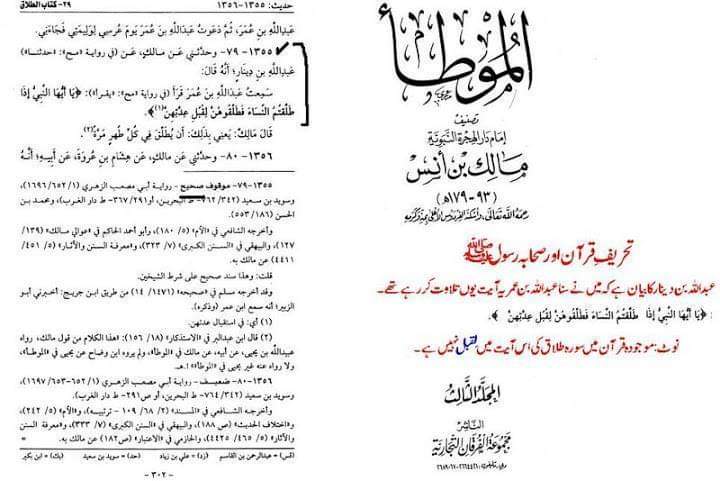 حديث: ١٣٥٥-١٣٥٦
٢٩- كتاب الطلاق
عَبدِاللَّهِ بنِ عُمَرَ، ثُمَّ دَعَوتُ عَبدَاللَّهِ بنَ عُمَرَ يَومَ عُرسِي لِوَلِيمَتِي فَجَاءَنِي.
١٣٥٥- ٧٩- وحدَّثَني عَن مالكٍ، عَن (في رواية «مح»: «حدثنا»)
عَبدِاللَّهِ بنِ دِينَارٍ؛ أنَّهُ قَالَ:
سَمِعتُ عَبدَاللَّهِ بنَ عُمَرَ قَرَأَ (في رواية «مح»: «يقرأ»): ﴿يَا أَيُّهَا النَّبِيُّ إِذَا
طَلَّقْتُمُ النِّسَاءَ فَطَلِّقُوهُنَّ لِقُبُلِ عِدَّتِهِنَّ﴾(١).
قَالَ مَالِكٌ: يَعنِي بِذَلِكَ: أَن يُطَلِّقَ فِي كُلِّ طُهرٍ مَرَّةً(٢).
١٣٥٦- ٨٠- وحدَّثَني عَن مالكٍ، عَن هِشَامِ بنِ عُروَةَ، عَن أَبِيهِ؛ أَنَّهُ
١٣٥٥-٧٩- موقوف صحيح - رواية أبي مصعب الزهري (١/ ٦٥٢/ ١٦٩٦)،
وسويد بن سعيد (٣٤٢/ ٧٦٢- ط البحرين، أو٢٩١/ ٣٦٧- ط دار الغرب)، ومحمد بن
الحسن (١٨٦/ ٥٥٣).
وأخرجه الشافعي في «الأم» (٥/ ١٨٠)، وأبو أحمد الحاكم في «عوالي مالك» (١٣٩/
١٢٧)، والبيهقي في «السنن الكبرى» (٧/ ٣٢٣)، و«معرفة السنن والآثار» (٥/ ٤٥١/
٤٤١١) عن مالك به.
قلت: وهذا سند صحيح على شرط الشيخين.
وقد أخرجه مسلم في «صحيحه» (١٤٧١/ ١٤) من طريق ابن جريج: أخبرني أبو
الزبير؛ أنه سمع ابن عمر (وذكره).
(١) أي: في استقبال عدتهن.
(٢) قال ابن عبدالبر في «الاستذكار» (١٨/ ١٥٦): «هذا الكلام من قول مالك، رواه
عبيدالله بن يحيى، عن أبيه، عن مالك في «الموطأ»، ولم يروه ابن وضاح عن يحيى في «الموطأ»،
ولا رواه عنه غير يحيى في «الموطأ»» ا.هـ.
١٣٥٦-٨٠- ضعيف - رواية أبي مصعب الزهري (١/ ٦٥٢-٦٥٣/ ١٦٩٧)،
وسويد بن سعيد (٣٤٢/ ٧٦٤- ط البحرين، أو ص٢٩١- ط دار الغرب).
وأخرجه الشافعي في «المسند» (٢/ ٦٨/ ١٠٩ - ترتيبه)، و«الأم» (٥/ ٢٤٢)،
و«اختلاف الحديث» (ص ١٨٨)، والبيهقي في «السنن الكبرى» (٧/ ٣٣٣)، و«معرفة السنن
والآثار» (٥/ ٤٦٥/ ٤٤٢٥)، والحازمي في «الاعتبار» (ص ١٨٢) عن مالك به.
(قس) = عبدالرحمن بن القاسم (زد) = علي بن زياد (حد) = سويد بن سعيد (بك) = ابن بكير
- ٣٠٢ -
الموطأ
تصنيف
إمام دار الهجرة النبوية
مالك بن أنس
(٩٣-١٧٩هـ)
تحریفِ قرآن اور صحابہ رسول ﷺ
عبداللہ بن دینار کا بیان ہے کہ میں نے سنا عبداللہ بن عمر یہ آیت یوں تلاوت کر رہے تھے۔
﴿يَا أَيُّهَا النَّبِيُّ إِذَا طَلَّقْتُمُ النِّسَاءَ فَطَلِّقُوهُنَّ لِقُبُلِ عِدَّتِهِنَّ﴾.
نوٹ: موجودہ قرآن میں سورہ طلاق کی اس آیت میں لقبل نہیں ہے۔
المجلد الثالث
الناشر
مجموعة الفرقان التجارية